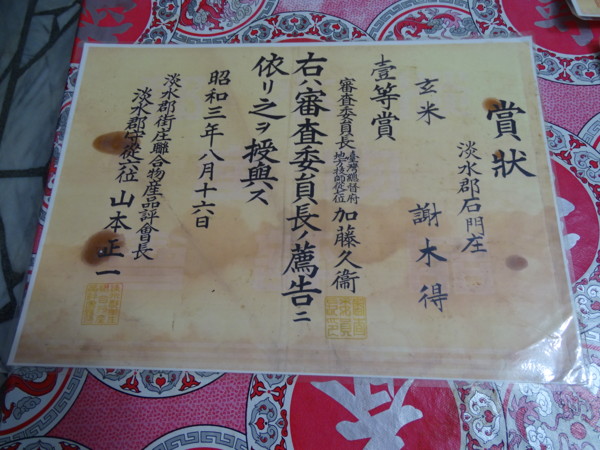 賞狀
淡水郡石門庄
玄米 謝木得
壹等賞
審査委員長 臺灣總督府
地方技師從七位 加藤久衞
右ハ審査委員長ノ薦告ニ
依リ之ヲ授與ス
昭和三年八月十六日
淡水郡街庄聯合物產品評會長
淡水郡守從七位 山本正一
春